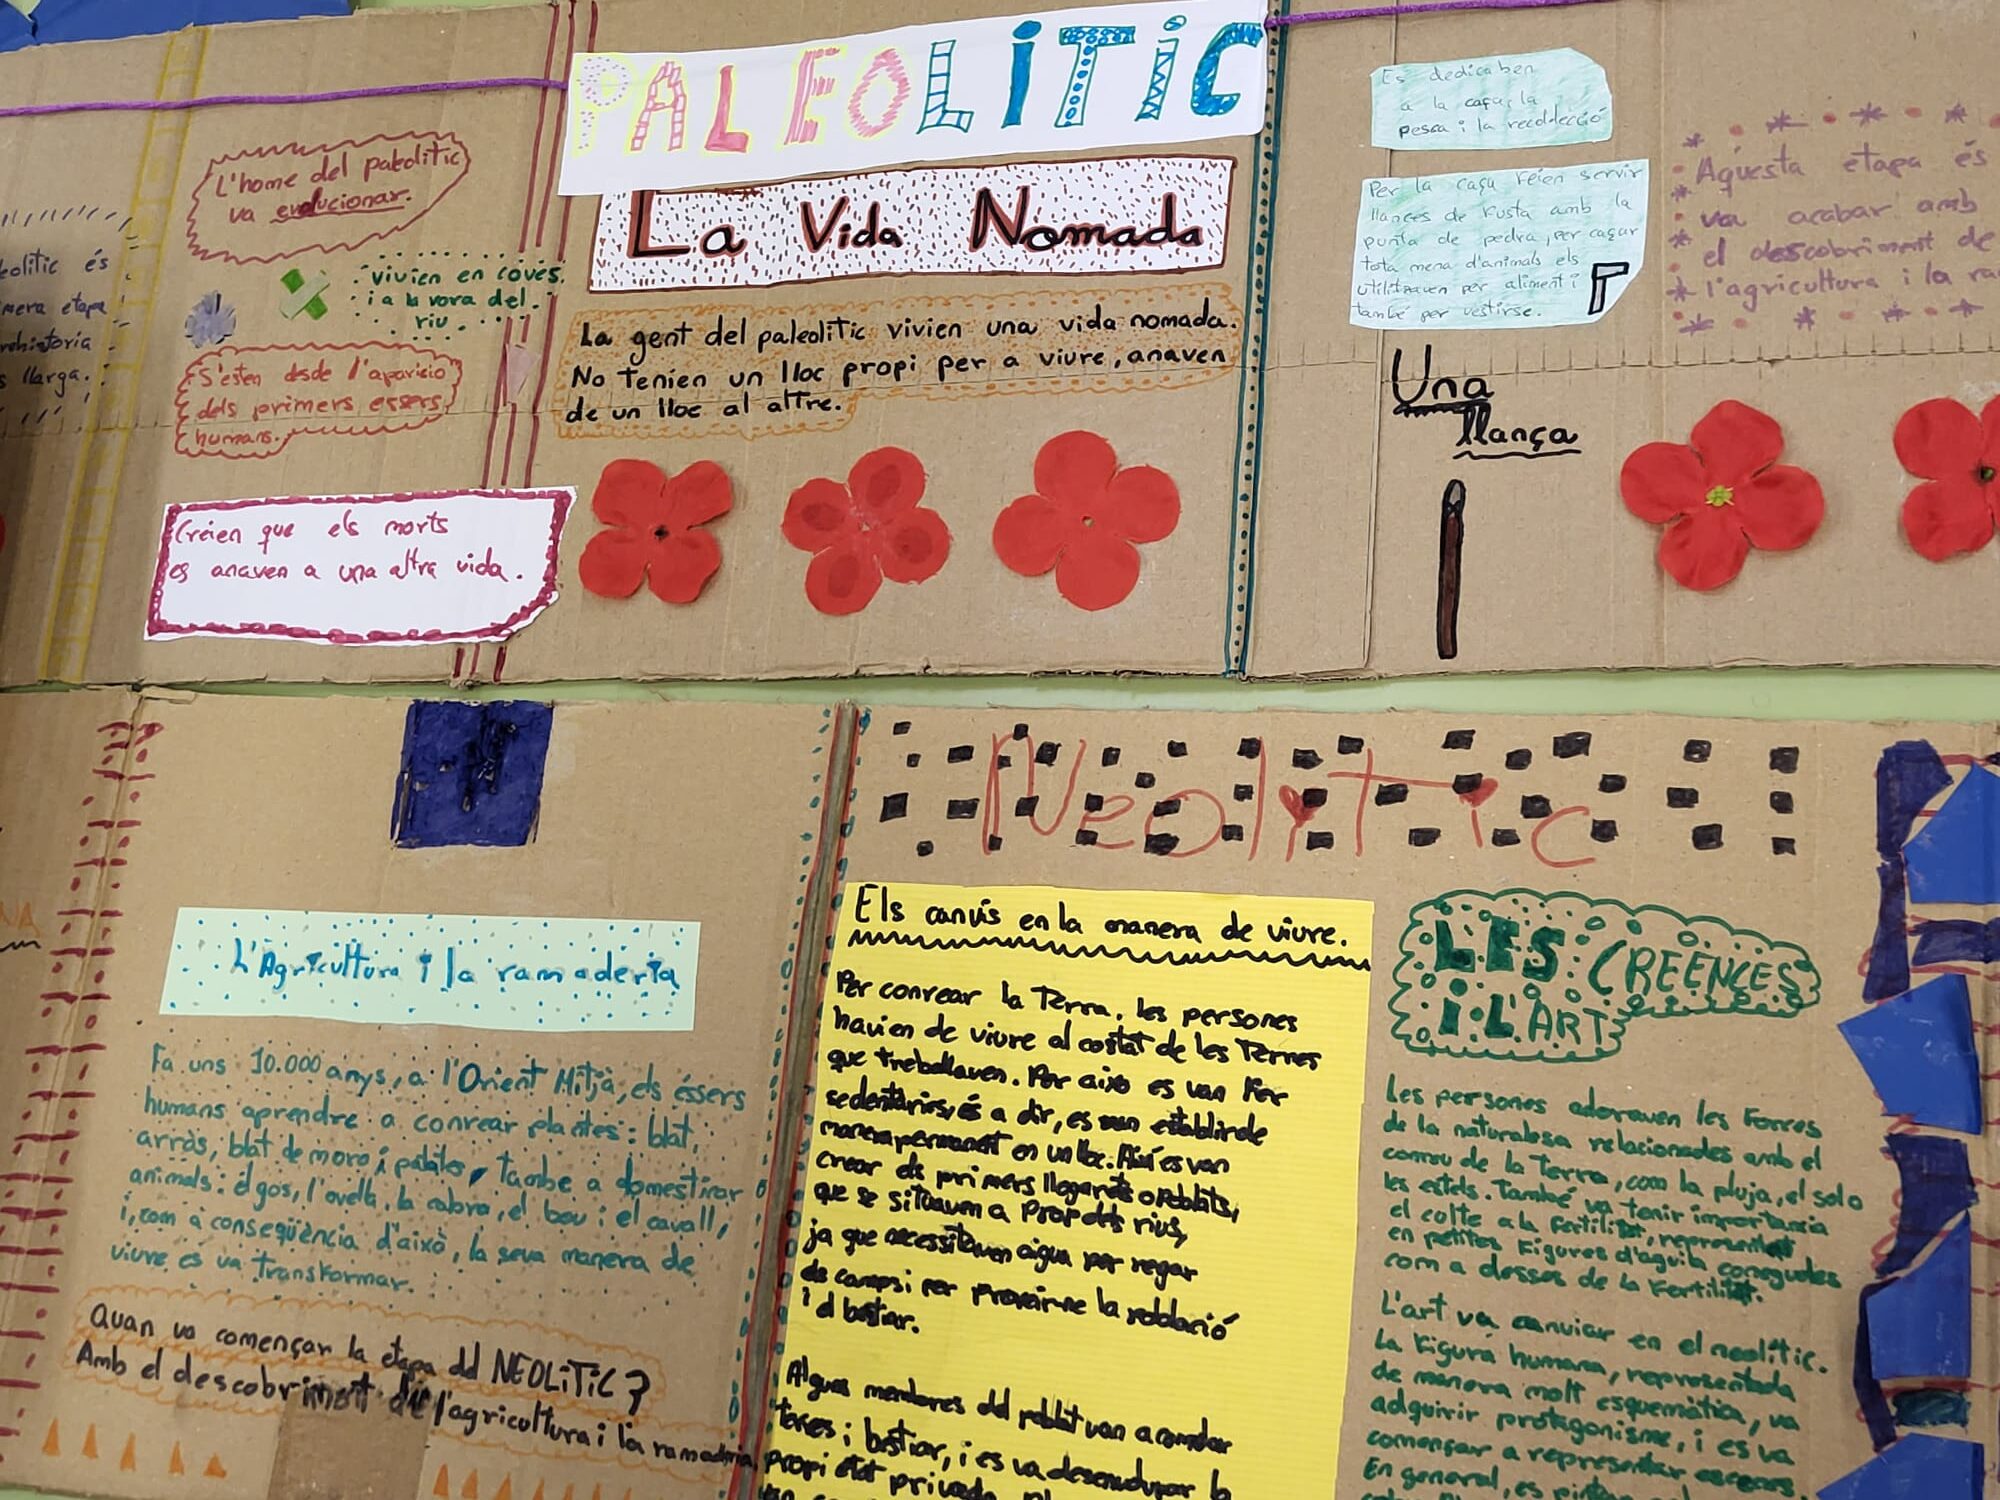 PALEOLÍTIC
La Vida Nomada
L'home del paleolitic
va evolucionar.
vivien en coves.
i a la vora del
riu.
S'esten desde l'aparicio
dels primers essers
humans.
Creien que els morts
es anaven a una altra vida.
La gent del paleolitic vivien una vida nomada.
No tenien un lloc propi per a viure, anaven
de un lloc al altre.
Es dedicaben
a la caça, la
pesca i la recol·lecció
Per la caça feien servir
llances de fusta amb la
punta de pedra, per caçar
tota mena d'animals els
utilitzaven per aliment i
també per vestirse.
Aquesta etapa és
va acabar amb
el descobriment de
l'agricultura i la
Una
llança
és
etapa
llarga.
L'Agricultura i la ramaderia
Fa uns 10.000 anys, a l'Orient Mitjà, els éssers
humans aprendre a conrear plantes: blat,
arròs, blat de moro i patates, també a domesticar
animals: el gos, l'ovella, la cabra, el bou i el cavall,
i, com a conseqüència d'això, la seva manera de
viure es va transformar.
Quan va començar la etapa del NEOLÍTIC?
Amb el descobriment de l'agricultura i la ramaderia
Neolític
Els canvis en la manera de viure.
Per conrear la terra, les persones
havien de viure al costat de les terres
que treballaven. Per això es van fer
sedentàries, és a dir, es van establir de
manera permanent en un lloc. Així es van
crear els primers llogarets o poblats,
que se situaven a prop dels rius,
ja que necessitaven aigua per regar
els camps i per proveir-ne la població
i el bestiar.
Alguns membres del poblat van acumular
terres i bestiar, i es va desenvolupar la
propietat privada.
LES CREENCES
I L'ART
Les persones adoraven les forces
de la naturalesa relacionades amb el
conreu de la terra, com la pluja, el sol o
les estels. També va tenir importancia
el culte a la fertilitat, representat
en petites figures d'aguila conegudes
com a deesses de la fertilitat.
L'art va canviar en el neolític.
La figura humana, representada
de manera molt esquemàtica, va
adquirir protagonisme, i es va
començar a representar escenes.
En general, es